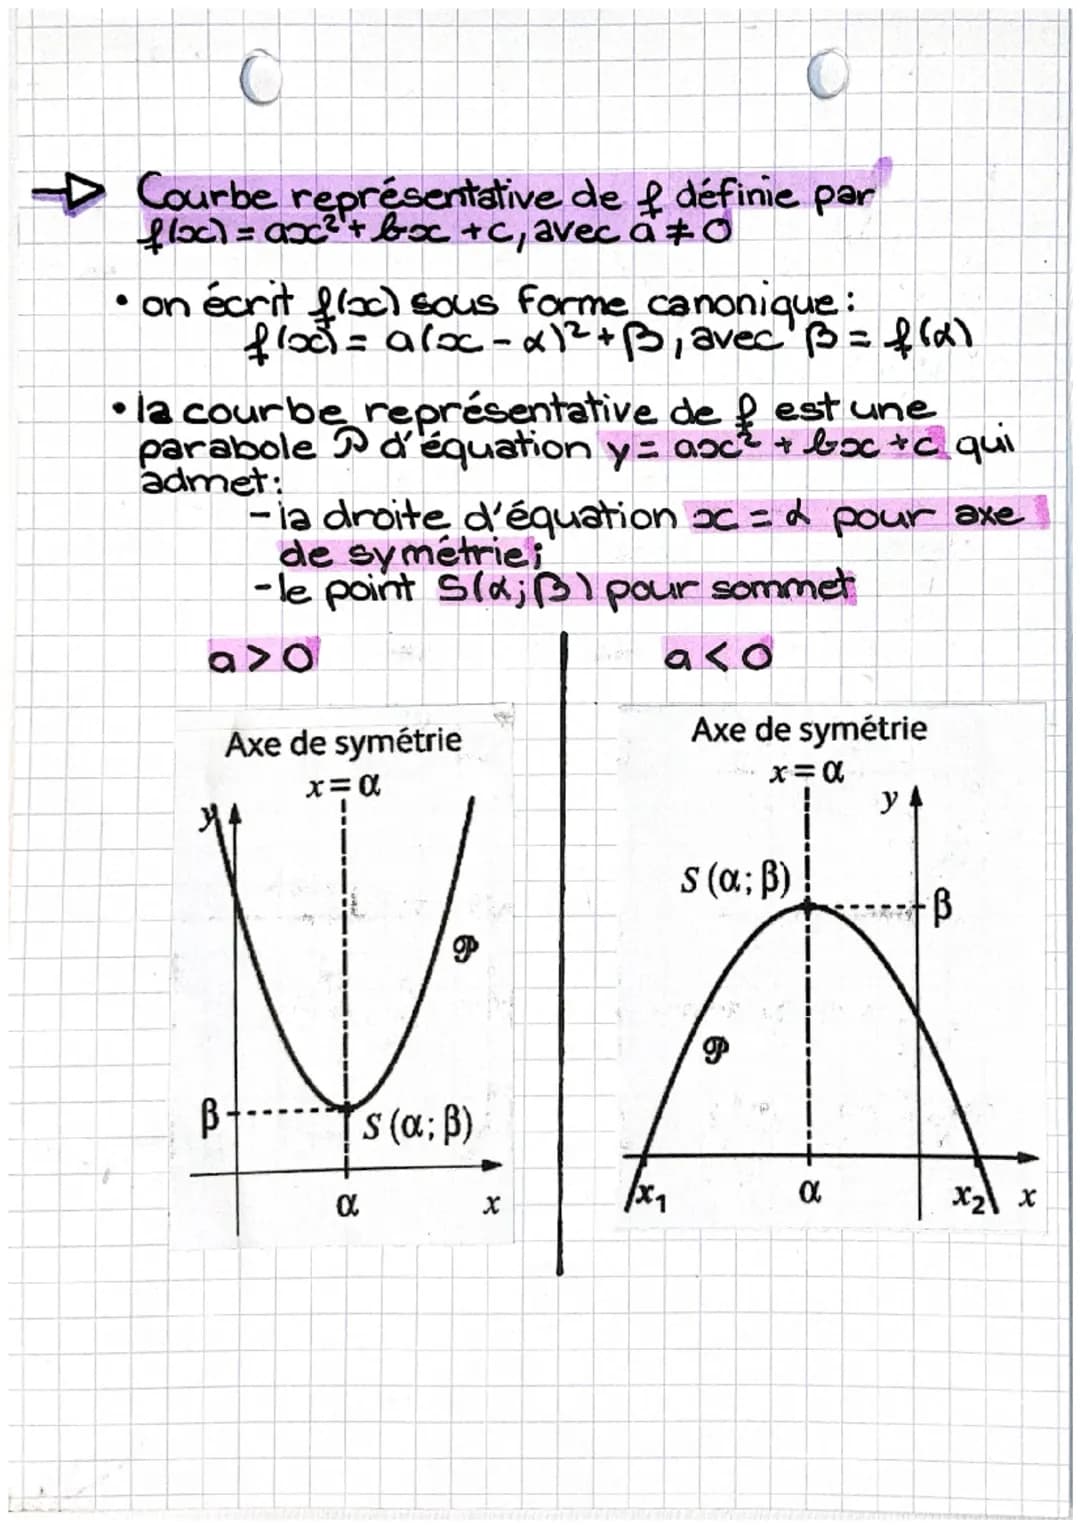 Courbe représentative de f définie par
f(x) = ax² + bx + c, avec a ≠ 0
• on écrit f(x) sous forme canonique :
f(x) = a(x - α)² + β, avec β = f(α)
• la courbe représentative de f est une
parabole P d'équation y = ax² + bx + c qui
admet :
- la droite d'équation x = α pour axe
de symétrie;
- le point S(α;β) pour sommet
a > 0
a < 0
Axe de symétrie
x = α
y
𝒫
β
S (α; β)
α
x
Axe de symétrie
x = α
y
S (α; β)
β
𝒫
x₁
α
x₂
x